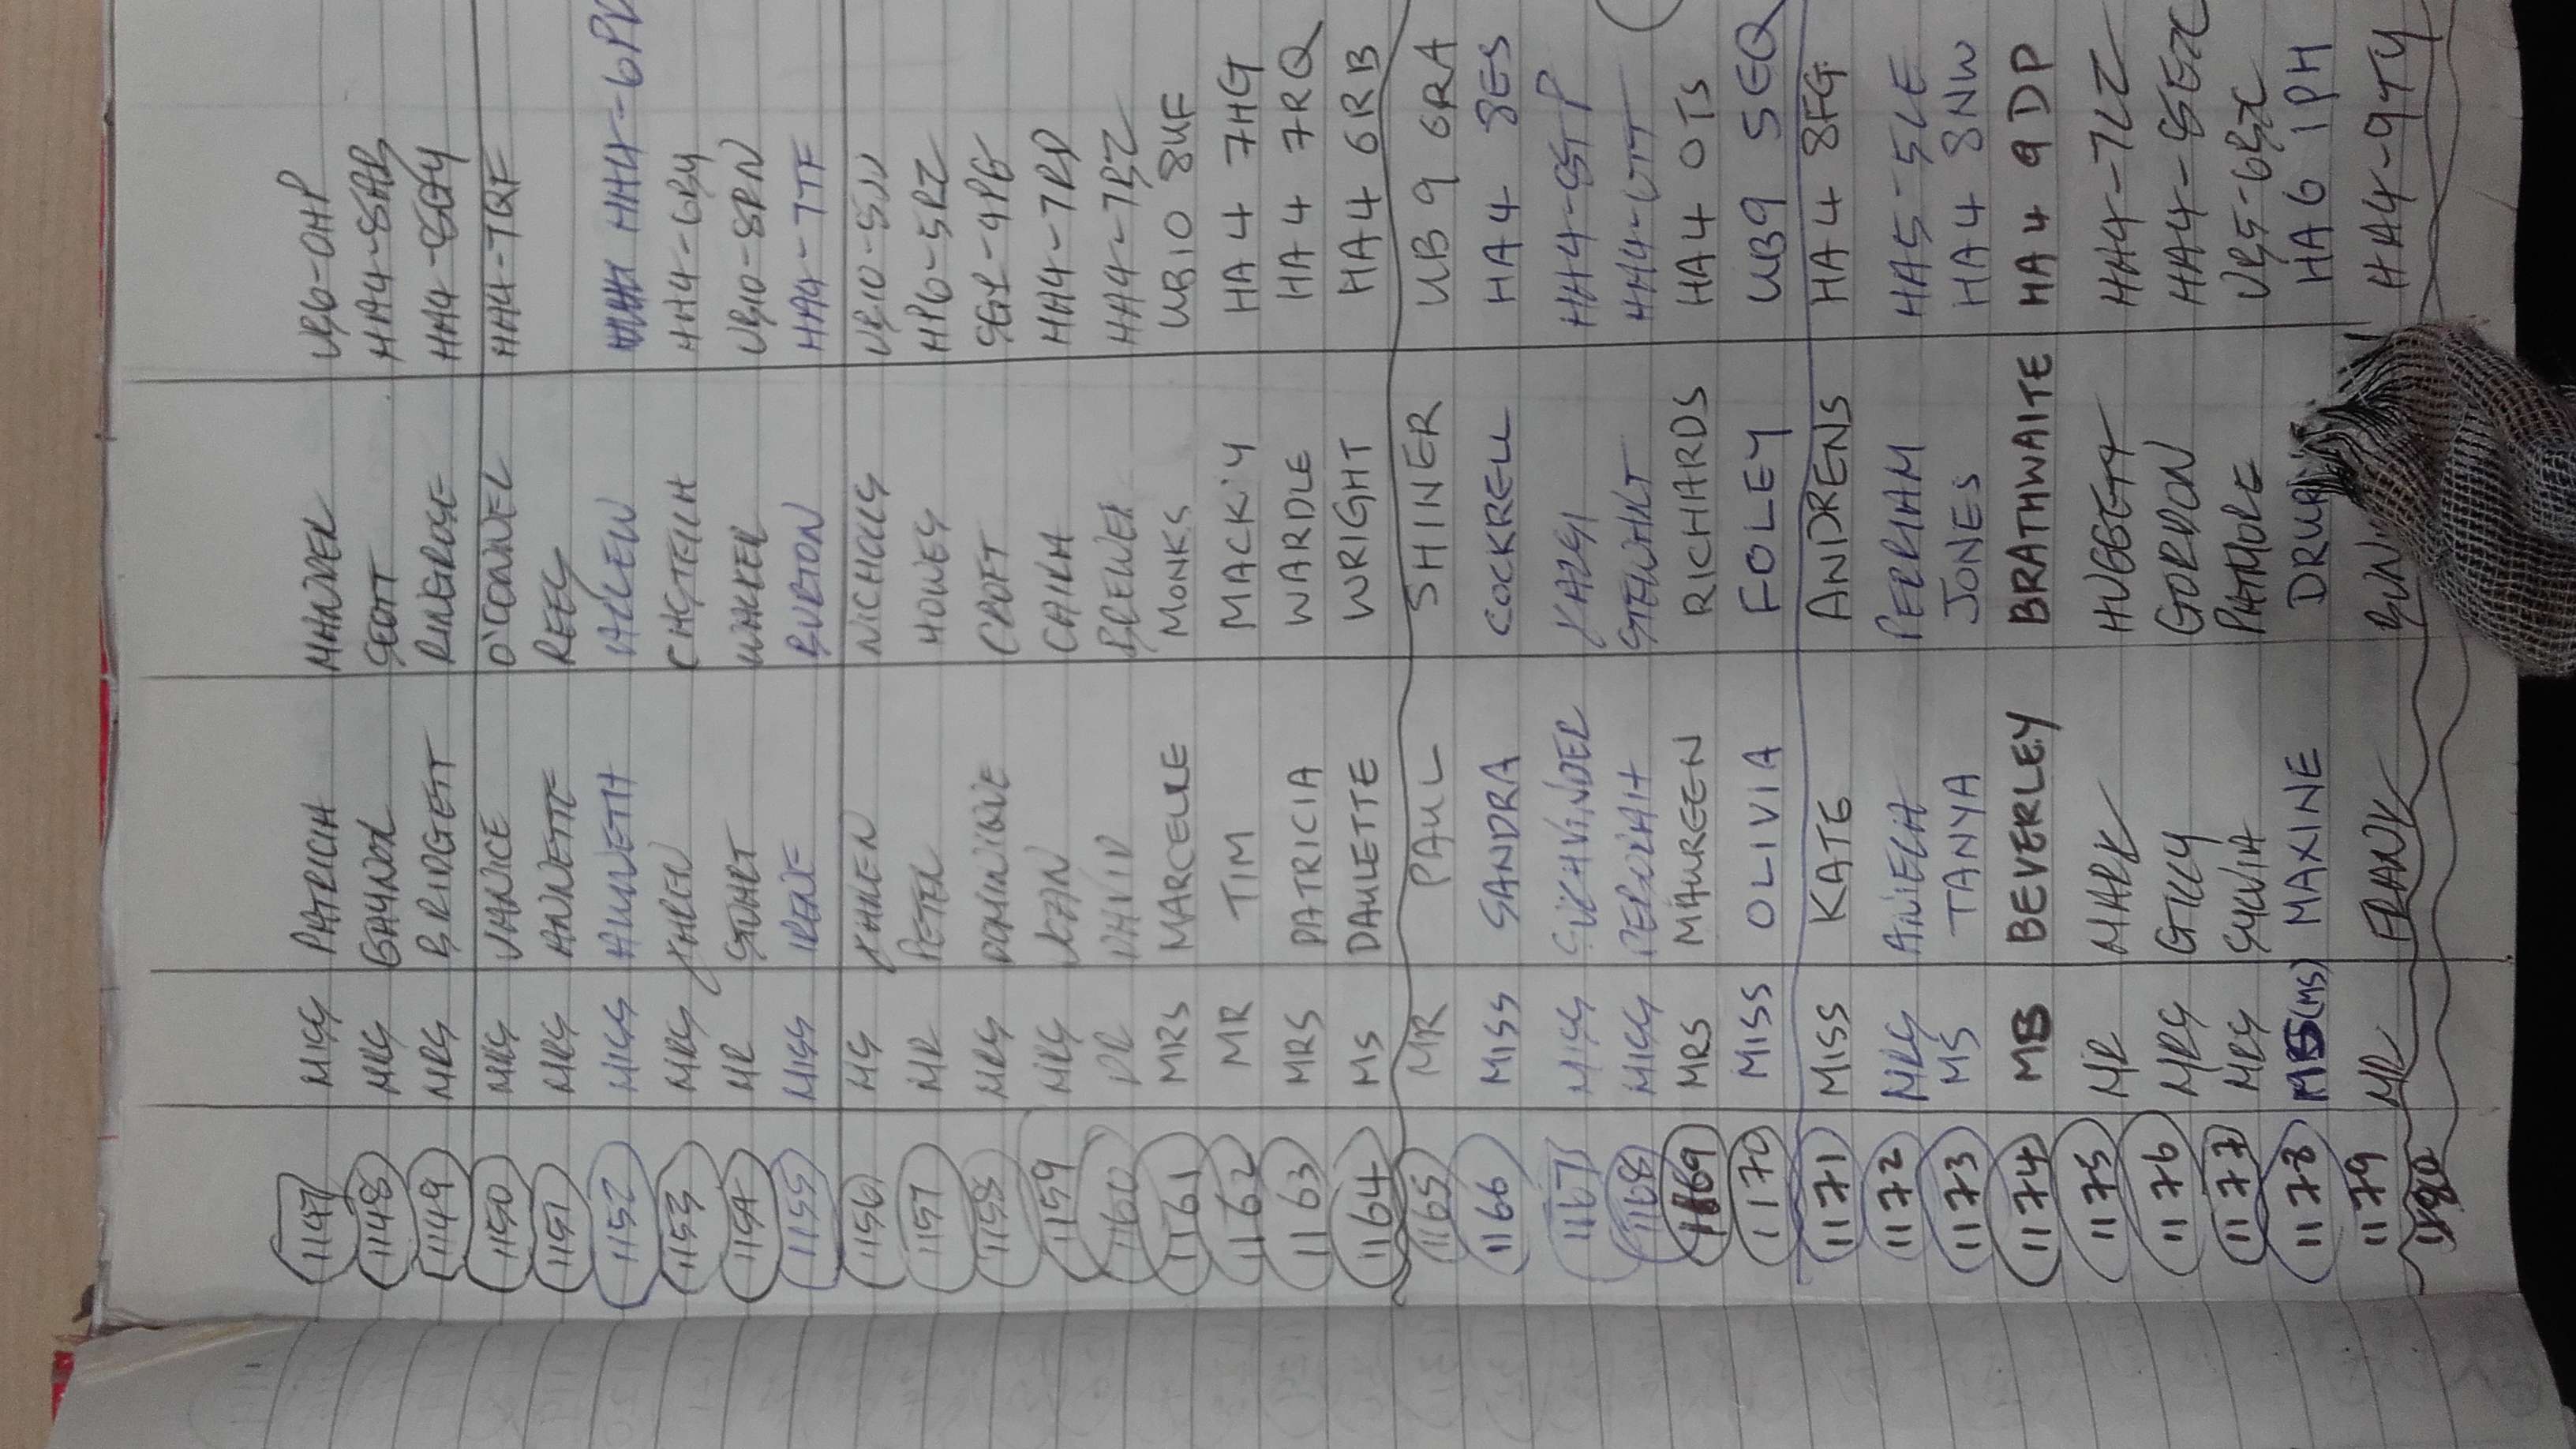 1147 MISS PATRICIA MANDER UB6-0HP
1148 MRS GAYNOR SCOTT HA4-8AB
1149 MRS BRIDGETT RINGROSE HA4-8GY
1150 MRS JANICE O'CONNEL HA4-7QF
1151 MRS ANNETTE REES
1152 MISS ALLEN
1153 MRS KAREN CASTELLA HA4-6BY
1154 MR STUART WALKER UB10-8RN
1155 MISS IRENE BURTON HA4-7TF
1156 MS KAREN NICHOLLS
1157 MR PETER HOWES HP6-5RZ
1158 MRS DOMINIQUE CROFT
1159 MRS CAIRA HA4-7RD
1160 DR DAVID BREWER HA4-7BZ
1161 MRS MARCELLE MONKS UB10 8UF
1162 MR TIM HA4 7HG
1163 MRS PATRICIA WARDLE HA4 7RQ
1164 MS DAULETTE WRIGHT HA4 6RB
1165 MR PAUL SHINER UB9 6RA
1166 MISS SANDRA COCKRELL HA4 8ES
1167 MISS SUKHVINDER KALSI HA4-8TP
1168 MISS DEBORAH STEWART HA4-0TT
1169 MRS MAUREEN RICHARDS HA4 0TS
1170 MISS OLIVIA FOLEY UB9 5EQ
1171 MISS KATE ANDRENS HA4 8FG
1172 MRS ANIELA PERRIAM HA5-5LE
1173 MS TANYA JONES HA4 8NW
1174 MS BEVERLEY BRATHWAITE HA4 9DP
1175 MR MARK HUGGETT HA4-7LZ
1176 MRS GILLY GORDON HA4-8EX
1177 MRS SYLVIA PATMORE UB5-6BX
1178 (MS) MAXINE HA6 1PH
1179 MR FRANK HA4-9TY
1180